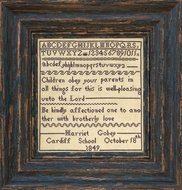 ABCDEFGHIJKLMNOPQRS
TUVWXYZ 1234567891011
abcdefghijklmnopqrstuvwxyz
Children obey your parents in
all things for this is well pleasing
unto the Lord
Be kindly affectioned one to ano
ther with brotherly love
Harriet Gobey
Cardiff School October 18th
1849